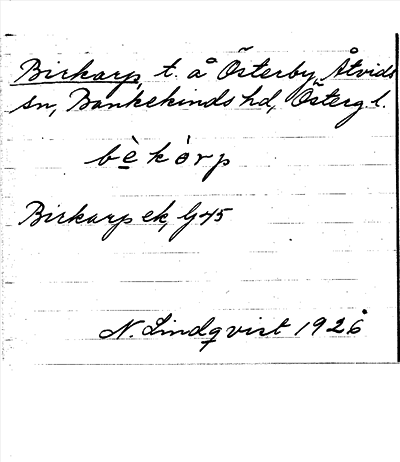 Birkarp, t. å Österby, Åtvids
sn, Bankekinds hd, Österg. l.
bè kòrp
Birkarp ek, G45
N. Lindqvist 1926